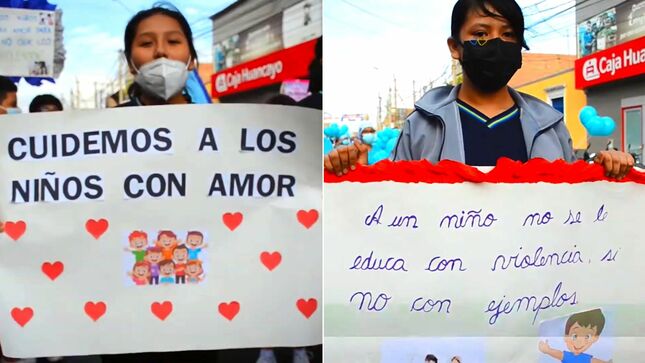 Caja Huancayo
CUIDEMOS A LOS
NIÑOS CON AMOR
Caja Huan
A un niño no se le
educa con violencia, si
no con ejemplos.